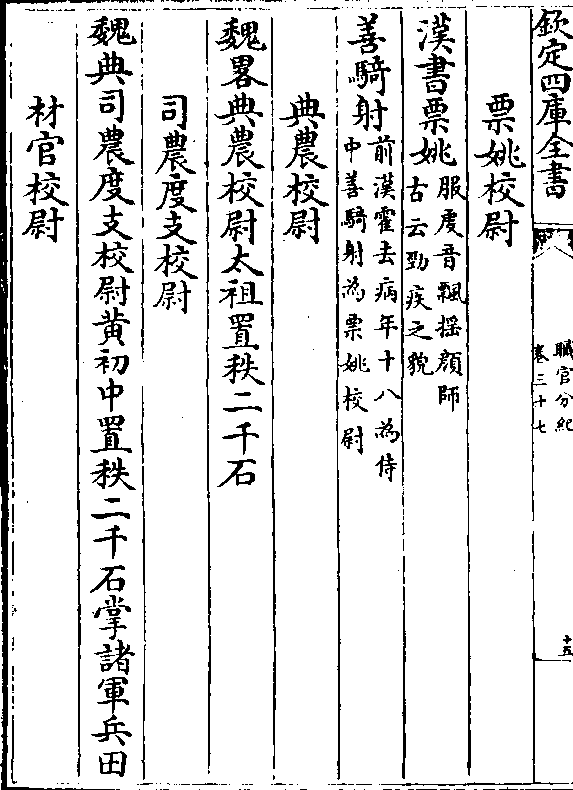 欽定四庫全書
職官分紀
卷三十七
十五
票姚校尉
漢書票姚服䖍音飄揺顔師
古云勁疾之貌
善騎射前漢霍去病年十八為侍
中善騎射為票姚校尉
典農校尉
魏畧典農校尉太祖置秩二千石
司農度支校尉
魏典司農度支校尉黄初中置秩二千石掌諸軍兵田
材官校尉